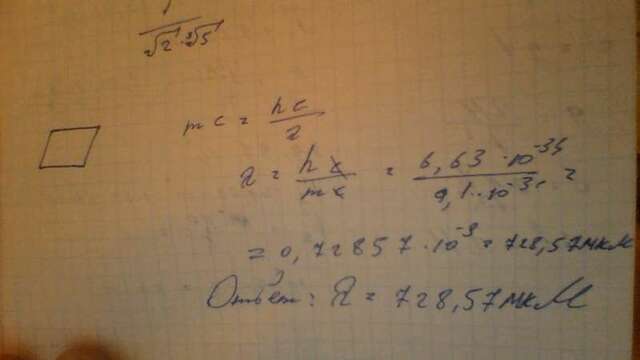 1
√2·³√5
mc = hc/λ
λ = hc/mc = 6,63·10⁻³⁴/9,1·10⁻³¹ =
= 0,72857·10⁻³ = 728,57 мкм
Ответ: λ = 728,57 мкм